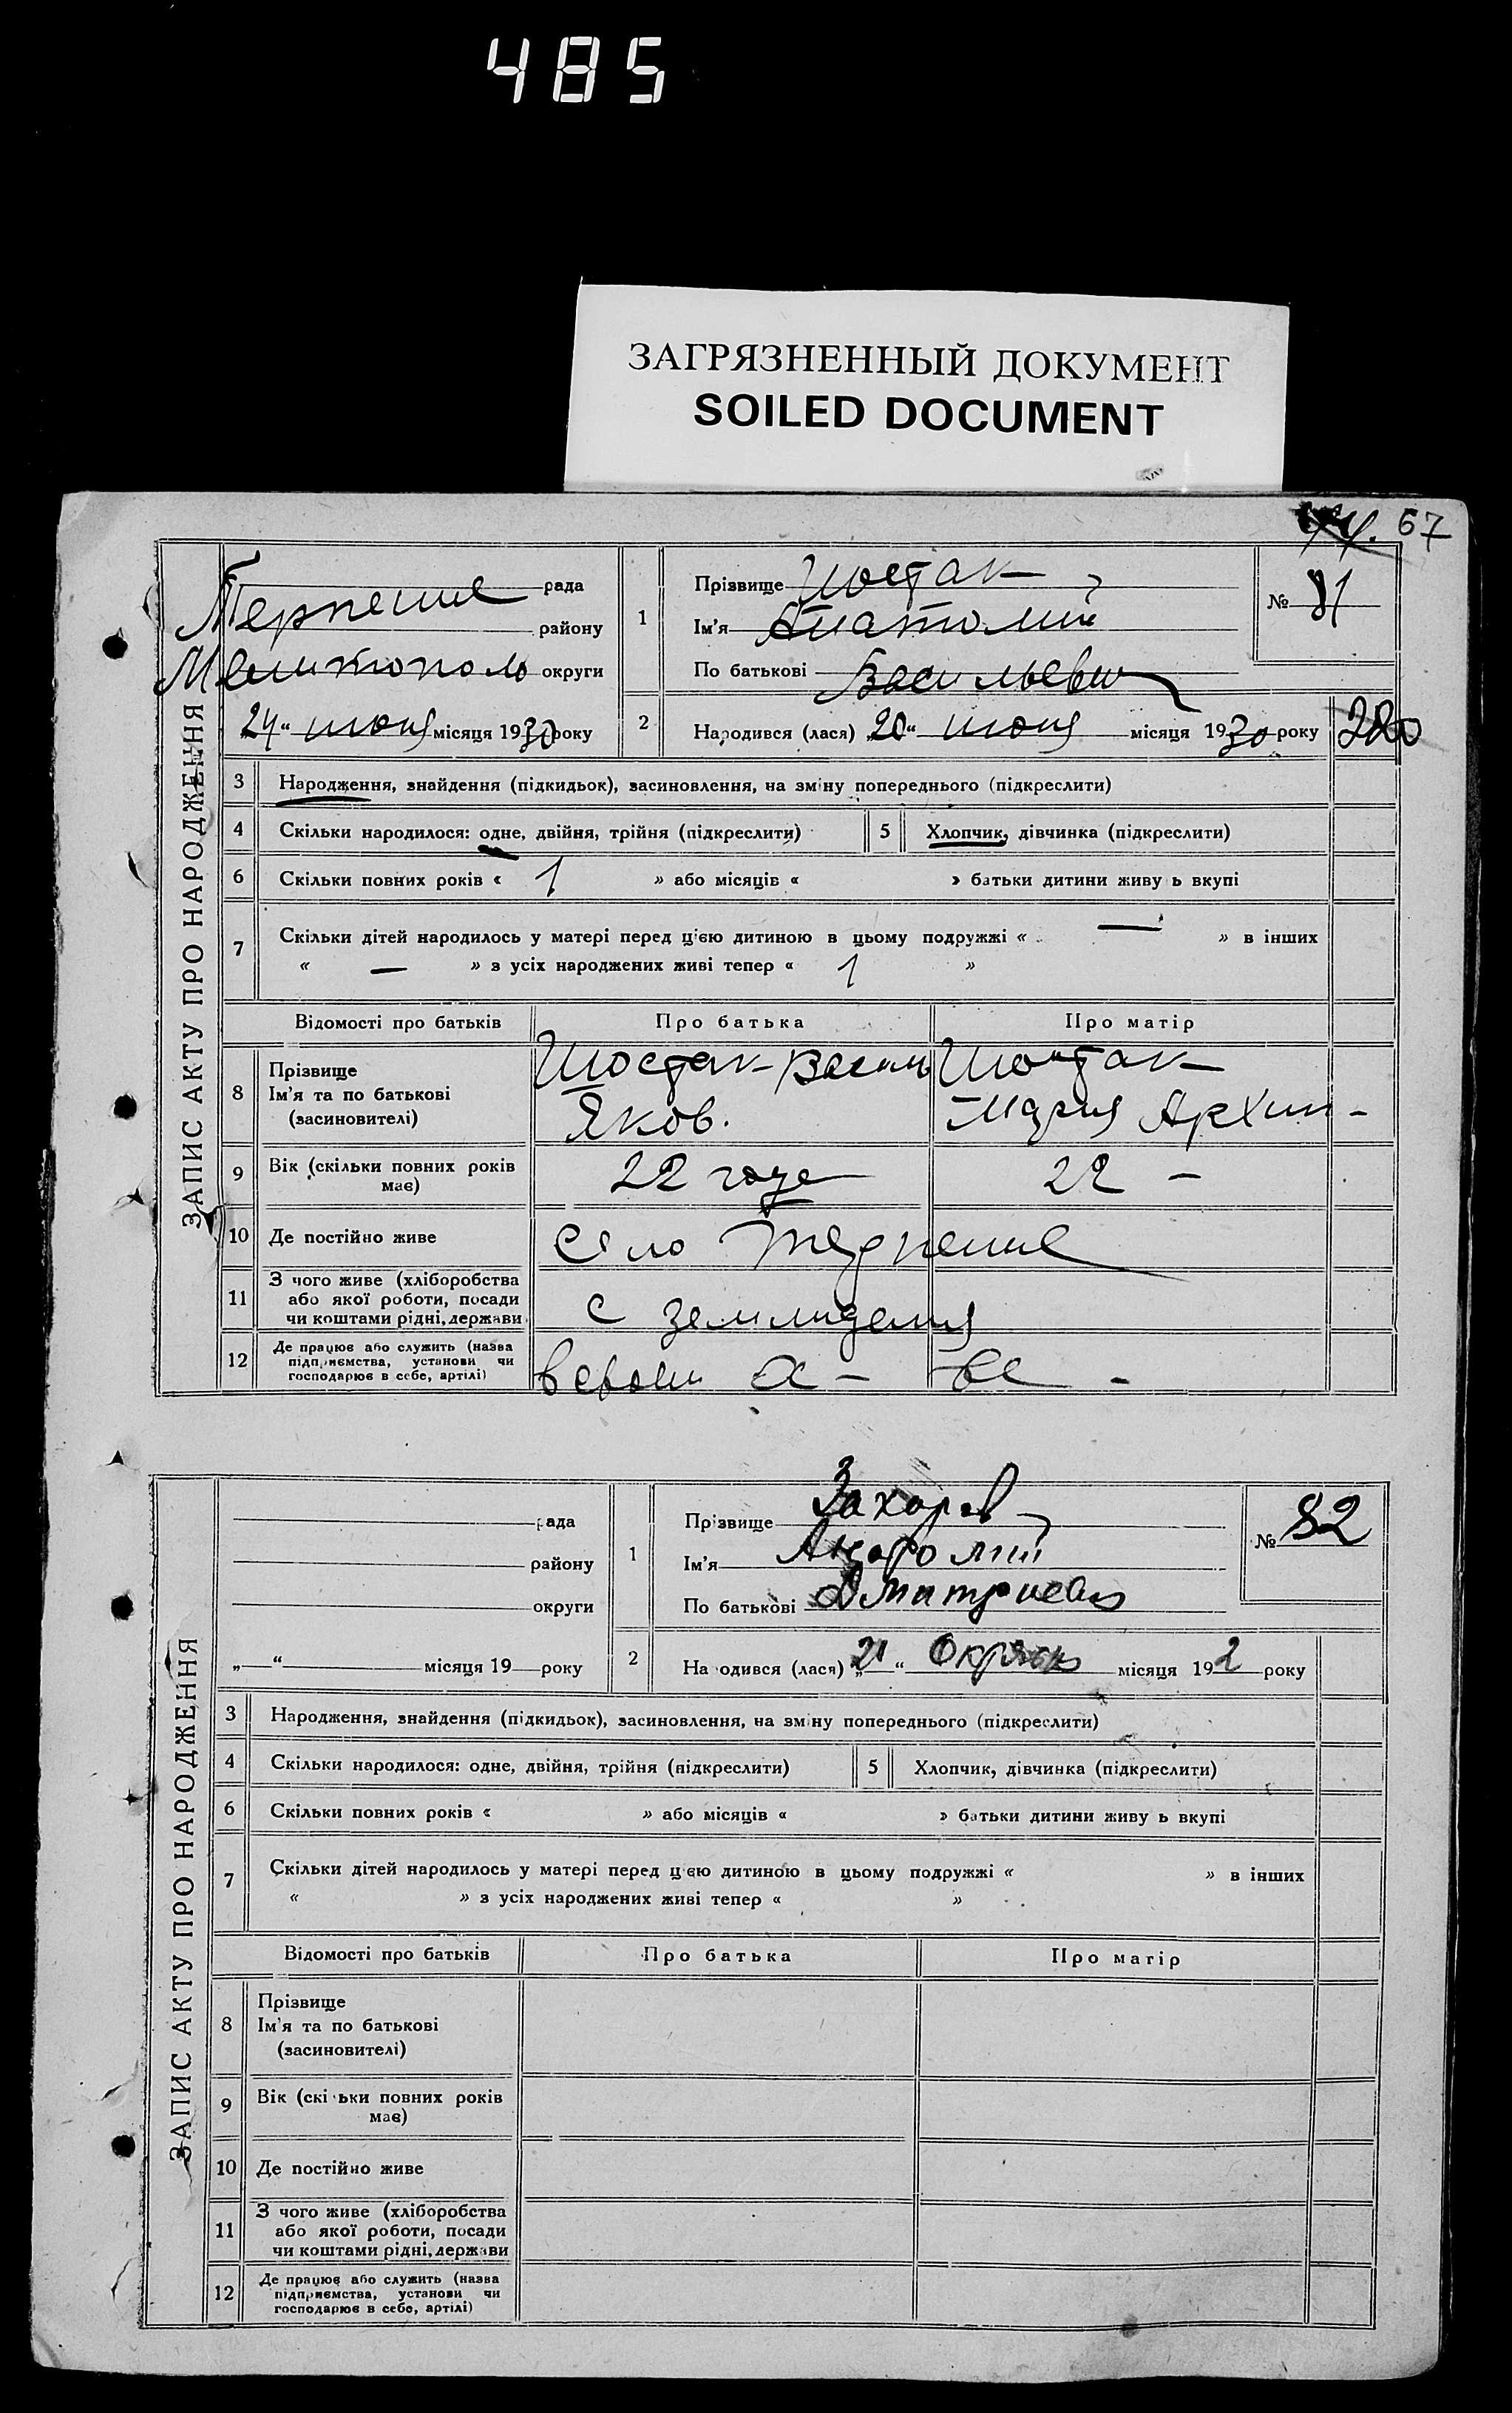 485
ЗАГРЯЗНЕННЫЙ ДОКУМЕНТ
SOILED DOCUMENT
67
ЗАПИС АКТУ ПРО НАРОДЖЕННЯ
Терпение рада
району
Мелитополь округи
24 “ июня місяця 1930 року
1 Прізвище Шостак
Ім’я Анатолий
По батькові Васильевич
№ 81
2 Народився (лася) „20“ июня місяця 1930 року
3 Народження, знайдення (підкидьок), засиновлення, на зміну попереднього (підкреслити)
4 Скільки народилося: одне, двійня, трійня (підкреслити) 5 Хлопчик, дівчинка (підкреслити)
6 Скільки повних років « 1 » або місяців « » батьки дитини живу ь вкупі
7 Скільки дітей народилось у матері перед цією дитиною в цьому подружжі « — » в інших
« — » з усіх народжених живі тепер « 1 »
Відомості про батьків Про батька Про матір
8 Прізвище
Ім’я та по батькові
(засиновителі)
Шостак Василь Шостак
Яков. Мария Архип-
9 Вік (скільки повних років
має)
22 года 22 –
10 Де постійно живе село Терпение
11 З чого живе (хліборобства
або якої роботи, посади
чи коштами рідні, держави
с земледелия
12 Де працює або служить (назва
підприємства, установи чи
господарює в себе, артілі)
ЗАПИС АКТУ ПРО НАРОДЖЕННЯ
рада
району
округи
„—“ місяця 19 року
1 Прізвище Захаров
Ім’я Анатолий
По батькові Дмитриевич
№ 82
2 На одився (лася) „21“ місяця 192 року
3 Народження, знайдення (підкидьок), засиновлення, на зміну попереднього (підкреслити)
4 Скільки народилося: одне, двійня, трійня (підкреслити) 5 Хлопчик, дівчинка (підкреслити)
6 Скільки повних років « » або місяців « » батьки дитини живу ь вкупі
7 Скільки дітей народилось у матері перед цією дитиною в цьому подружжі « » в інших
« » з усіх народжених живі тепер « »
Відомості про батьків Про батька Про матір
8 Прізвище
Ім’я та по батькові
(засиновителі)
9 Вік (скі ьки повних років
має)
10 Де постійно живе
11 З чого живе (хліборобства
або якої роботи, посади
чи коштами рідні, держави
12 Де працює або служить (назва
підприємства, установи чи
господарює в себе, артілі)